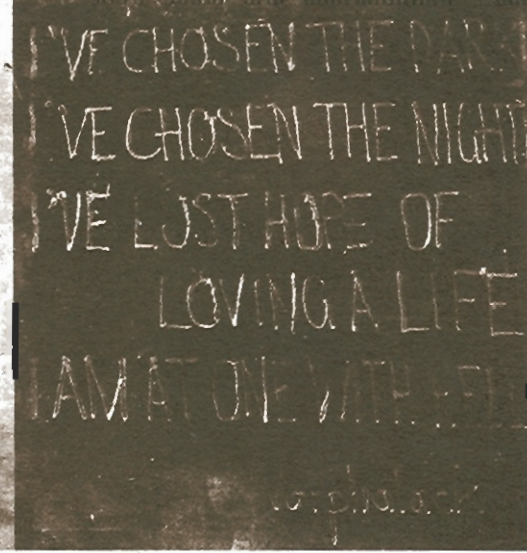 I'VE CHOSEN THE DARK
I'VE CHOSEN THE NIGHT
I'VE LOST HOPE OF
LOVING A LIFE
I AM AT ONE WITH